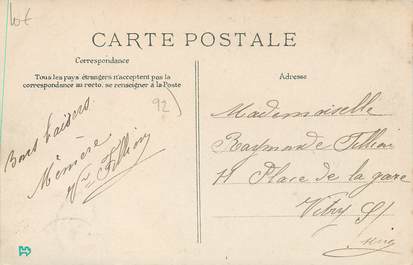 Lot
CARTE POSTALE
Correspondance
Tous les pays étrangers n'acceptent pas la
correspondance au recto, se renseigner à la Poste
Adresse
92)
Bons baisers.
Mémère
Vve Fillion
Mademoiselle
Raymonde Fillion
11 Place de la gare
Vitry s/